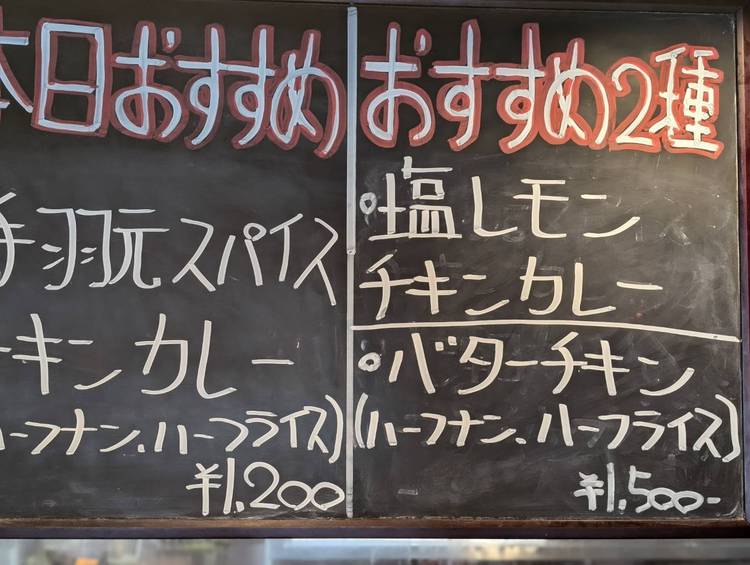 本日おすすめ
手羽元スパイス
チキンカレー
(ハーフナン、ハーフライス)
¥1.200
おすすめ2種
・塩レモン
チキンカレー
・バターチキン
(ハーフナン、ハーフライス)
¥1.500-